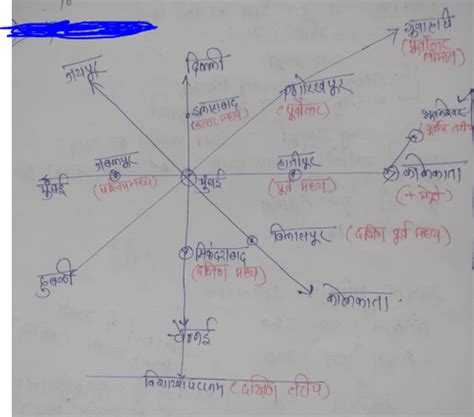 गुवाहाटी
(पूर्वोत्तर
सीमांत)
जयपुर
दिल्ली
गोरखपुर
(पूर्वोत्तर)
इलाहाबाद
(उत्तर मध्य)
भुवनेश्वर
(पूर्वी तटीय)
मुंबई
जबलपुर
(पश्चिम मध्य)
मुंबई
हाजीपुर
(पूर्व मध्य)
कोलकाता
(+ मेट्रो)
बिलासपुर (दक्षिण पूर्व मध्य)
सिकंदराबाद
(दक्षिण मध्य)
हुबली
कोलकाता
चेन्नई
विशाखापटनम (दक्षिण तटीय)